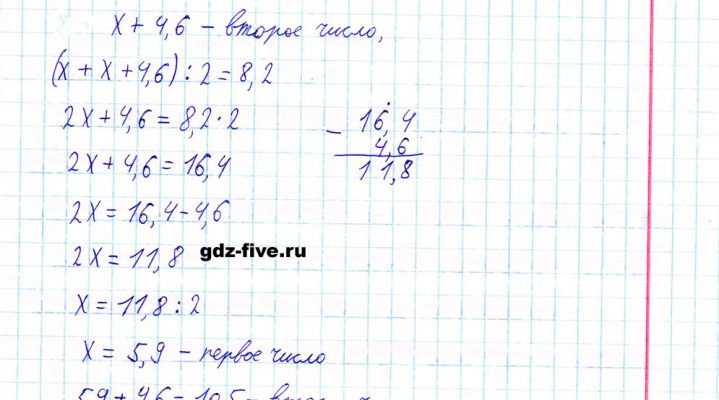 x + 4,6 – второе число,
(x + x + 4,6) : 2 = 8,2
2x + 4,6 = 8,2 · 2
2x + 4,6 = 16,4
2x = 16,4 – 4,6
2x = 11,8
x = 11,8 : 2
x = 5,9 – первое число
5,9 + 4,6 = 10,5 –
– 16,4
4,6
11,8
gdz-five.ru